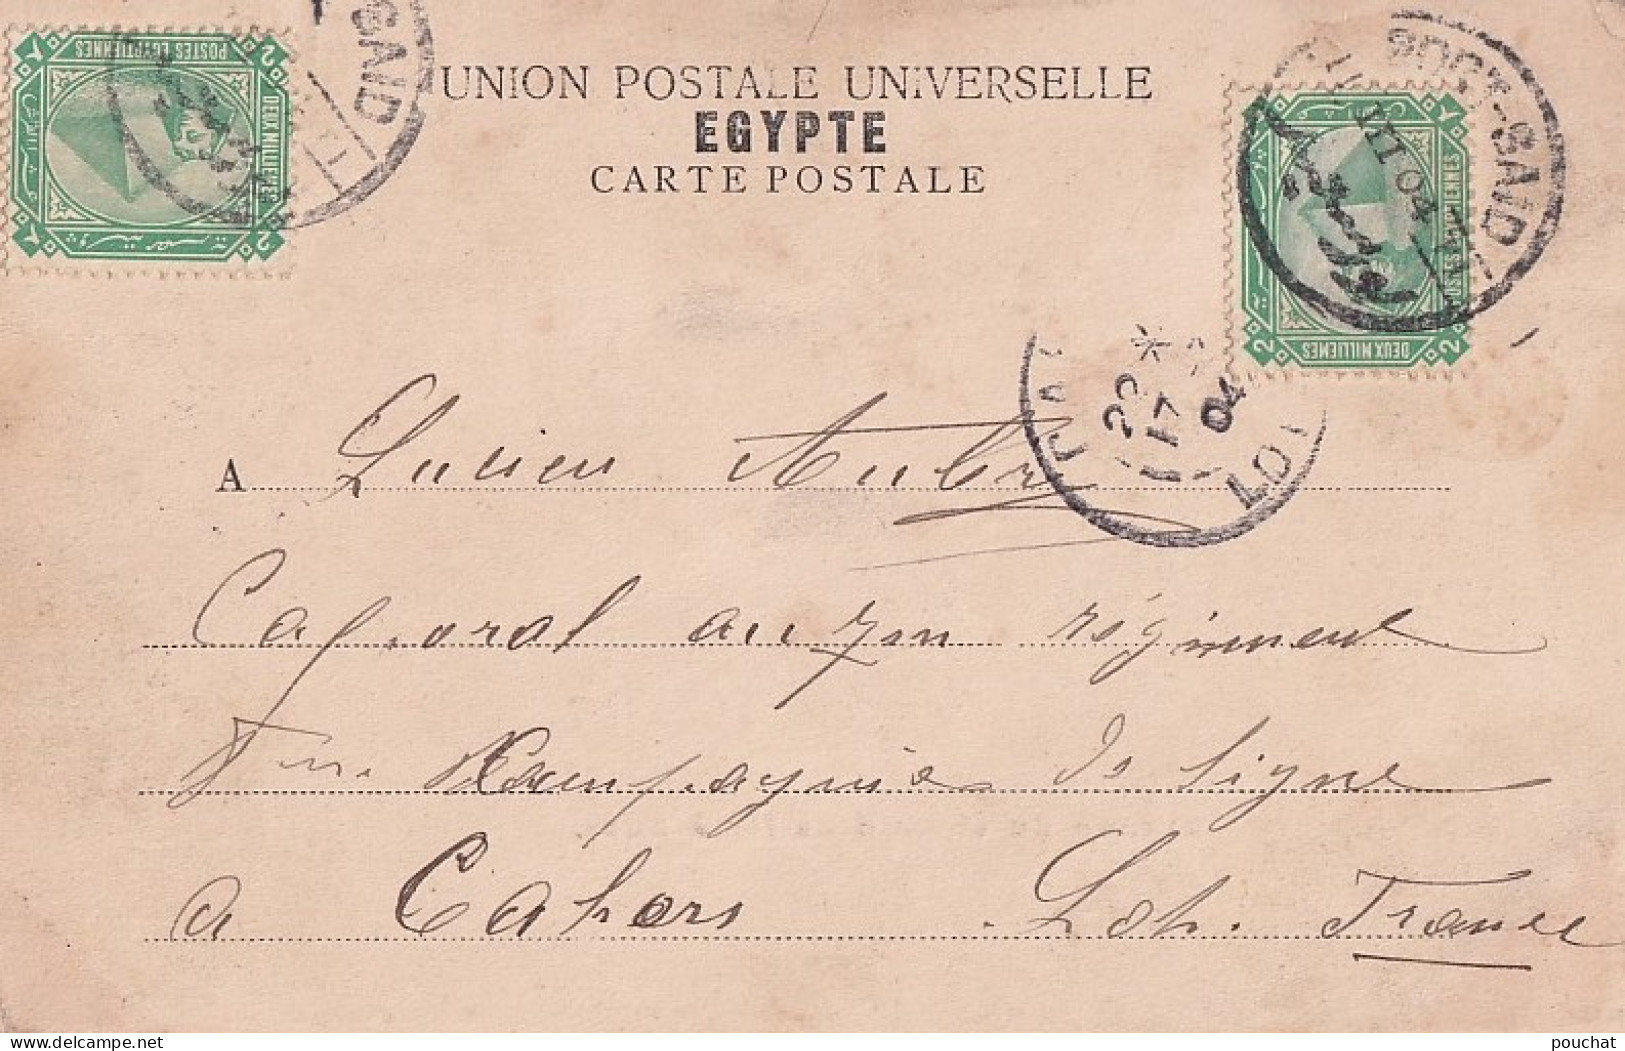 UNION POSTALE UNIVERSELLE
EGYPTE
CARTE POSTALE
POSTES EGYPTIENNES
DEUX MILLIEMES
2
2
SAID
PORT-SAID
III 04
DEUX MILLIEMES
2
2
22
04
LOT
A Lucien Aubr
Caporal au 7m régiment
Compagnie de ligne
a Cahors Lot. France
pouchat